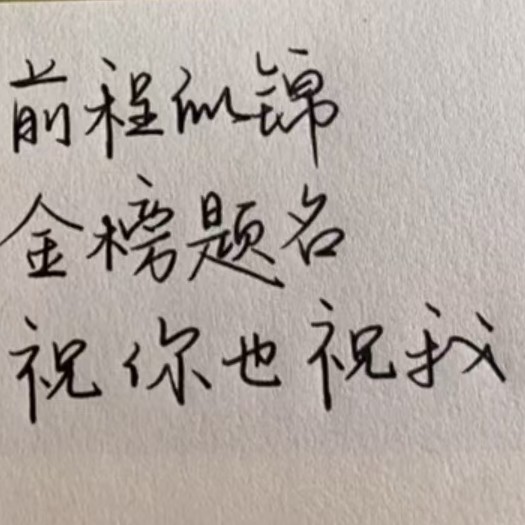 前程似锦
金榜题名
祝你也祝我